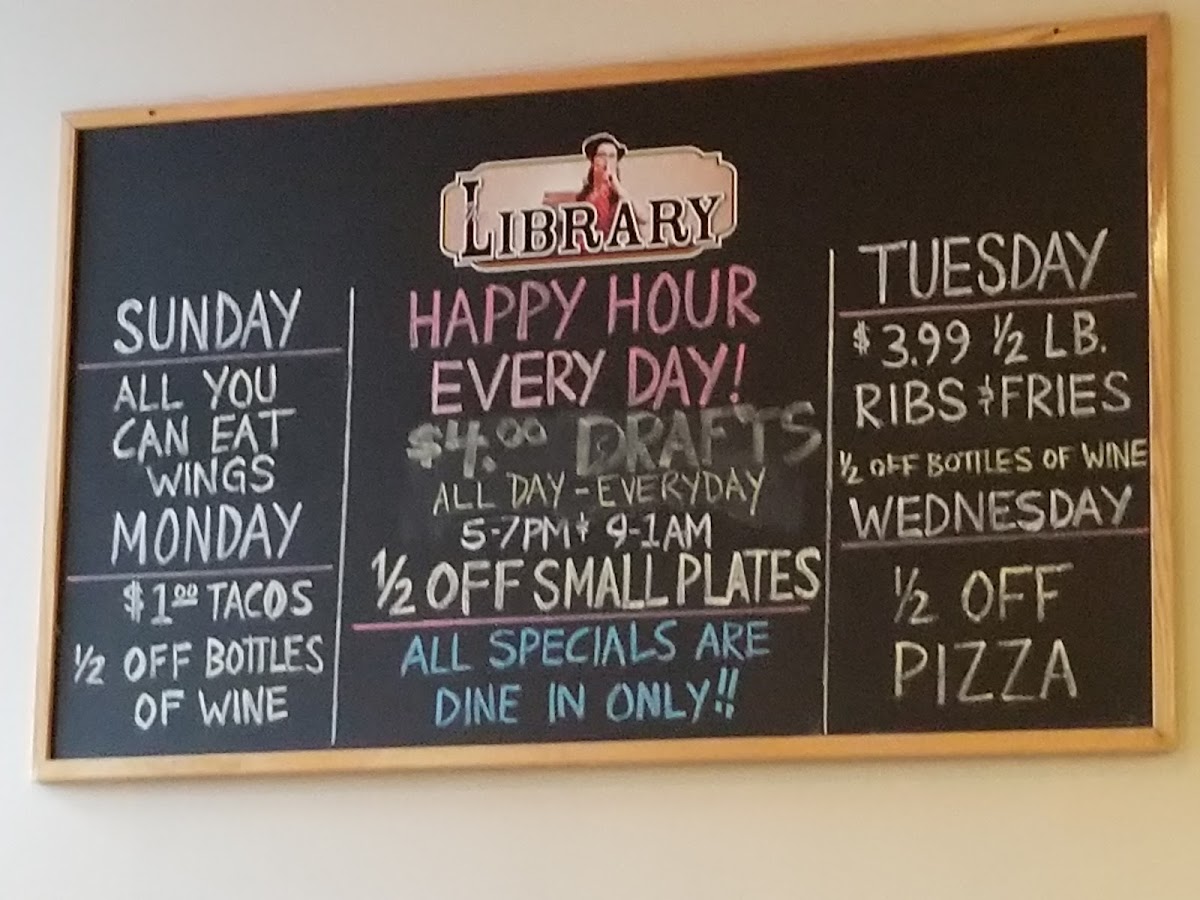 LIBRARY
SUNDAY
ALL YOU
CAN EAT
WINGS
MONDAY
$1.00 TACOS
1/2 OFF BOTTLES
OF WINE
HAPPY HOUR
EVERY DAY!
$4.00 DRAFTS
ALL DAY - EVERYDAY
5-7PM & 9-1AM
1/2 OFF SMALL PLATES
ALL SPECIALS ARE
DINE IN ONLY!!
TUESDAY
$3.99 1/2 LB.
RIBS & FRIES
1/2 OFF BOTTLES OF WINE
WEDNESDAY
1/2 OFF
PIZZA